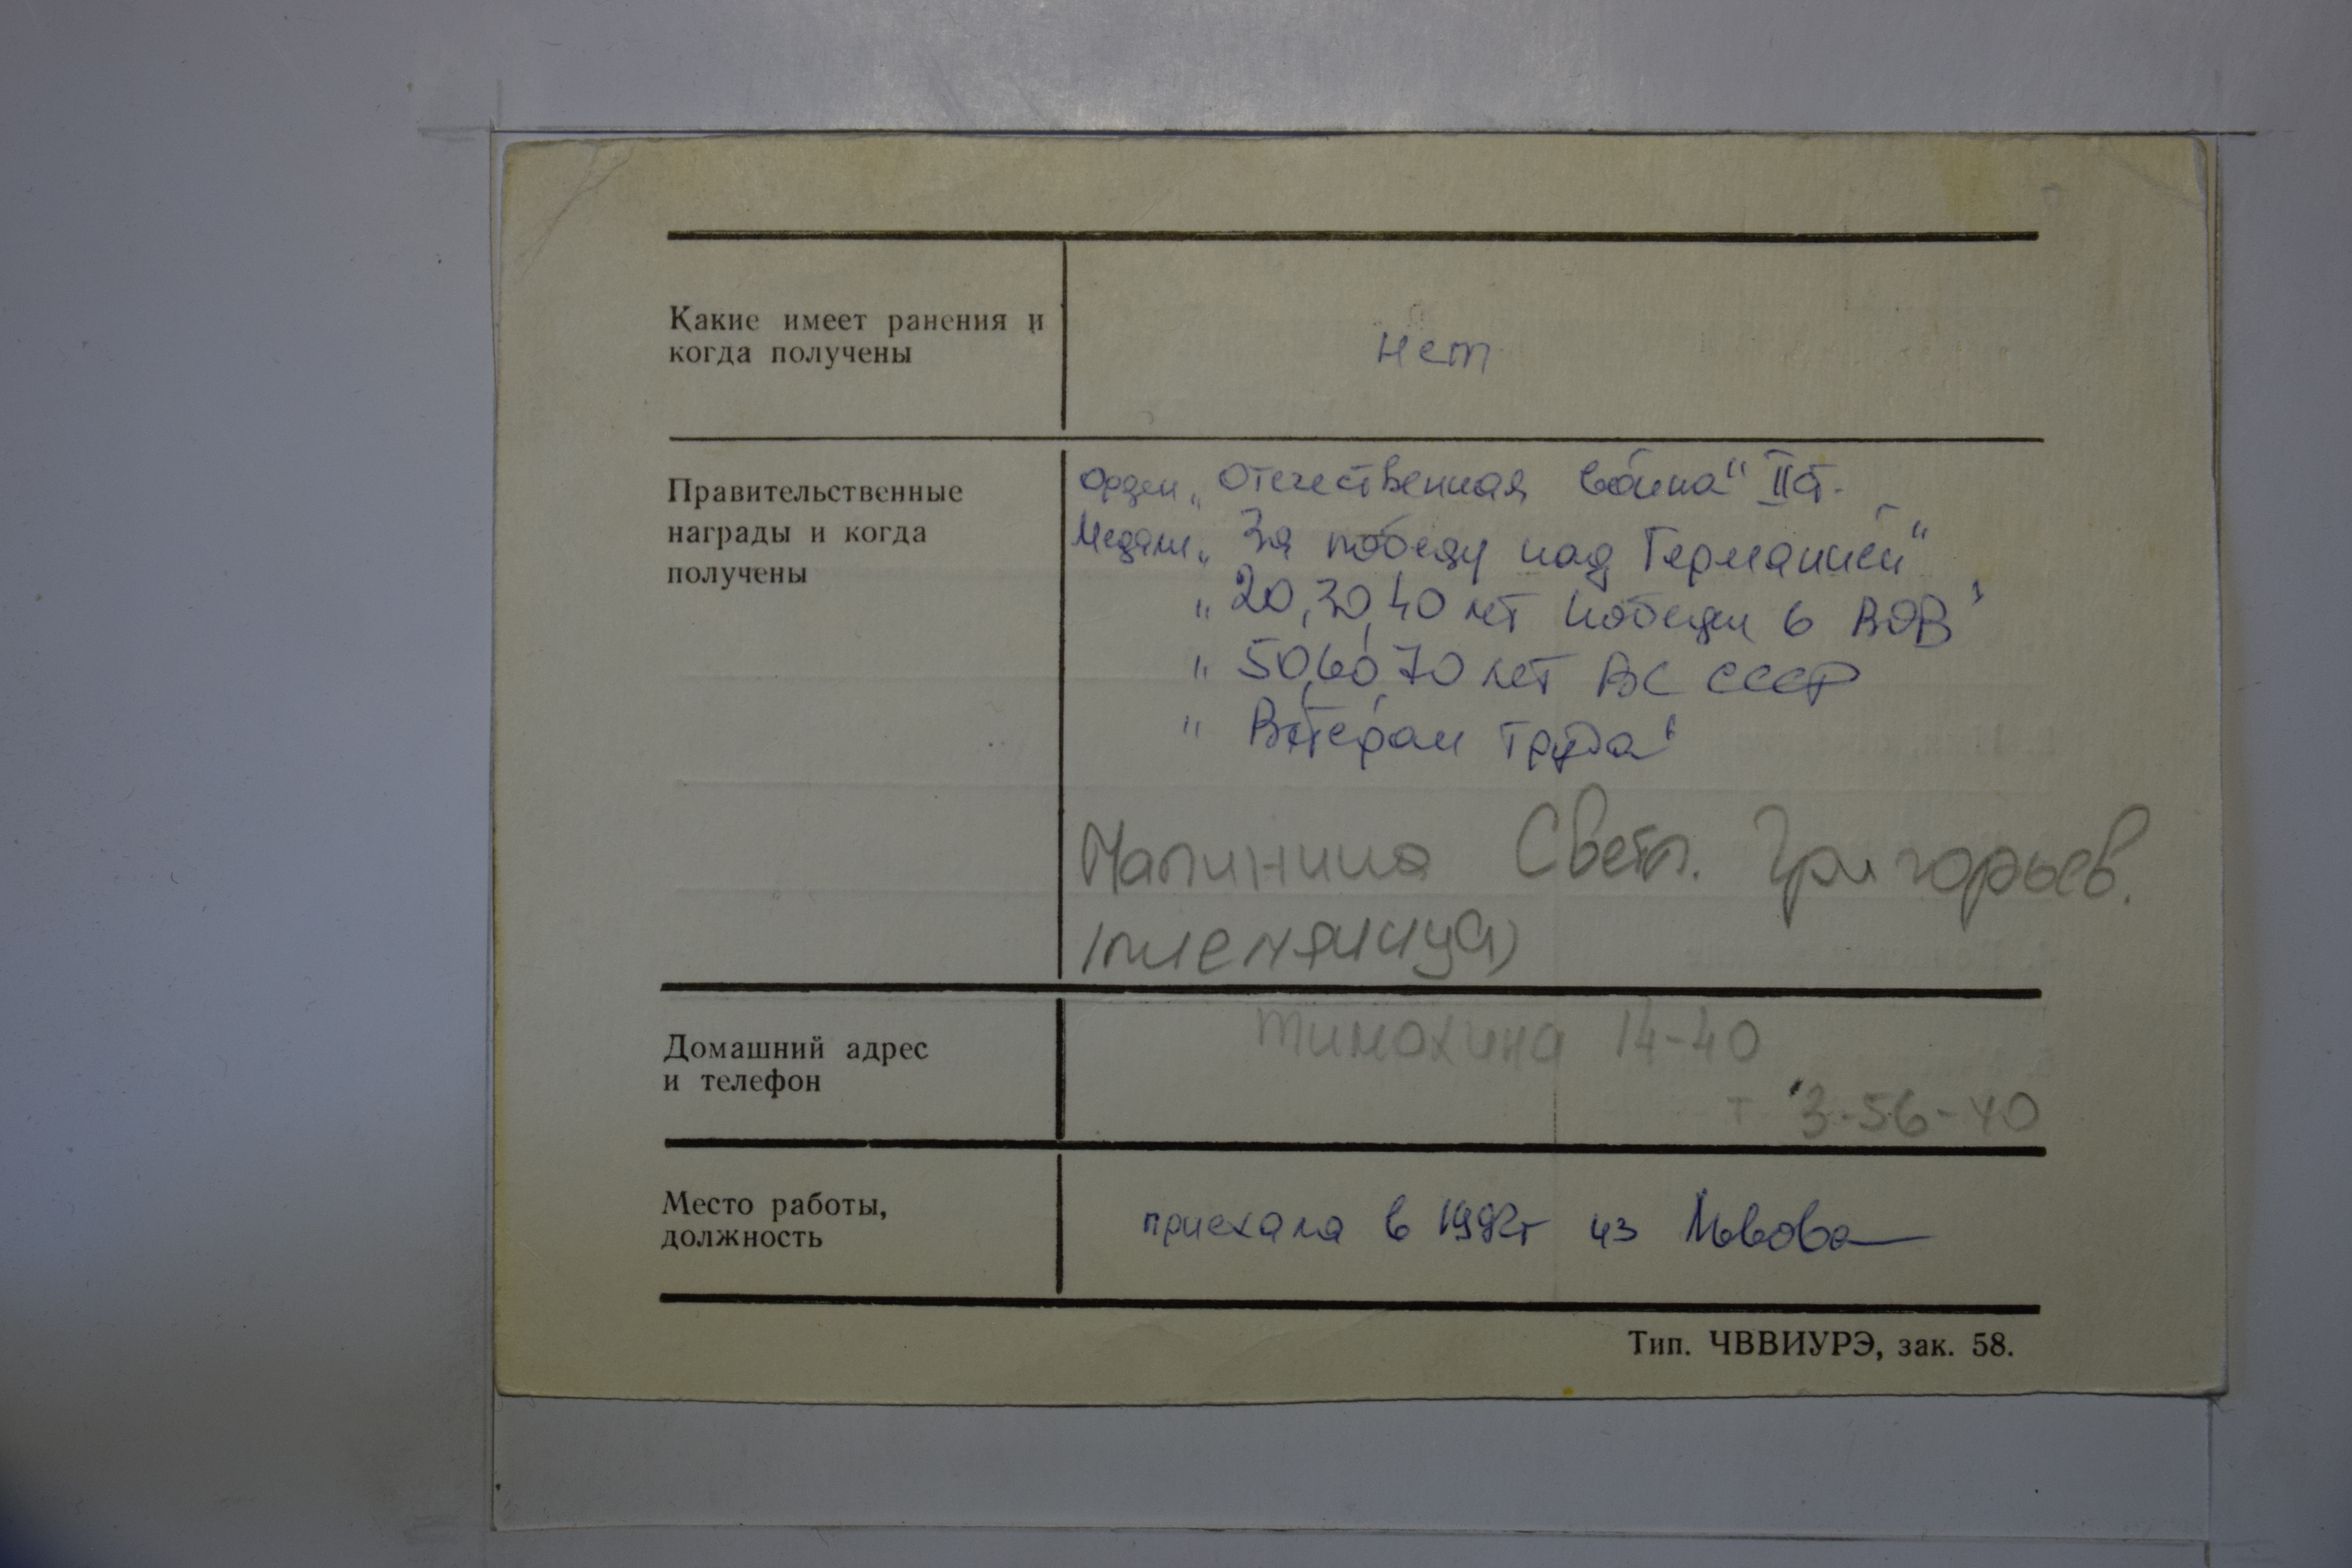 Какие имеет ранения и
когда получены
нет
Правительственные
награды и когда
получены
Орден „Отечественная война" II ст.
Медали „За победу над Германией"
„20, 30, 40 лет победы в ВОВ"
„50, 60, 70 лет ВС СССР
„Ветеран труда"
Малинина Светл. Григорьев.
(племянница)
Домашний адрес
и телефон
Тимохина 14-40
т 3-56-40
Место работы,
должность
приехала в 1992г из Львова
Тип. ЧВВИУРЭ, зак. 58.